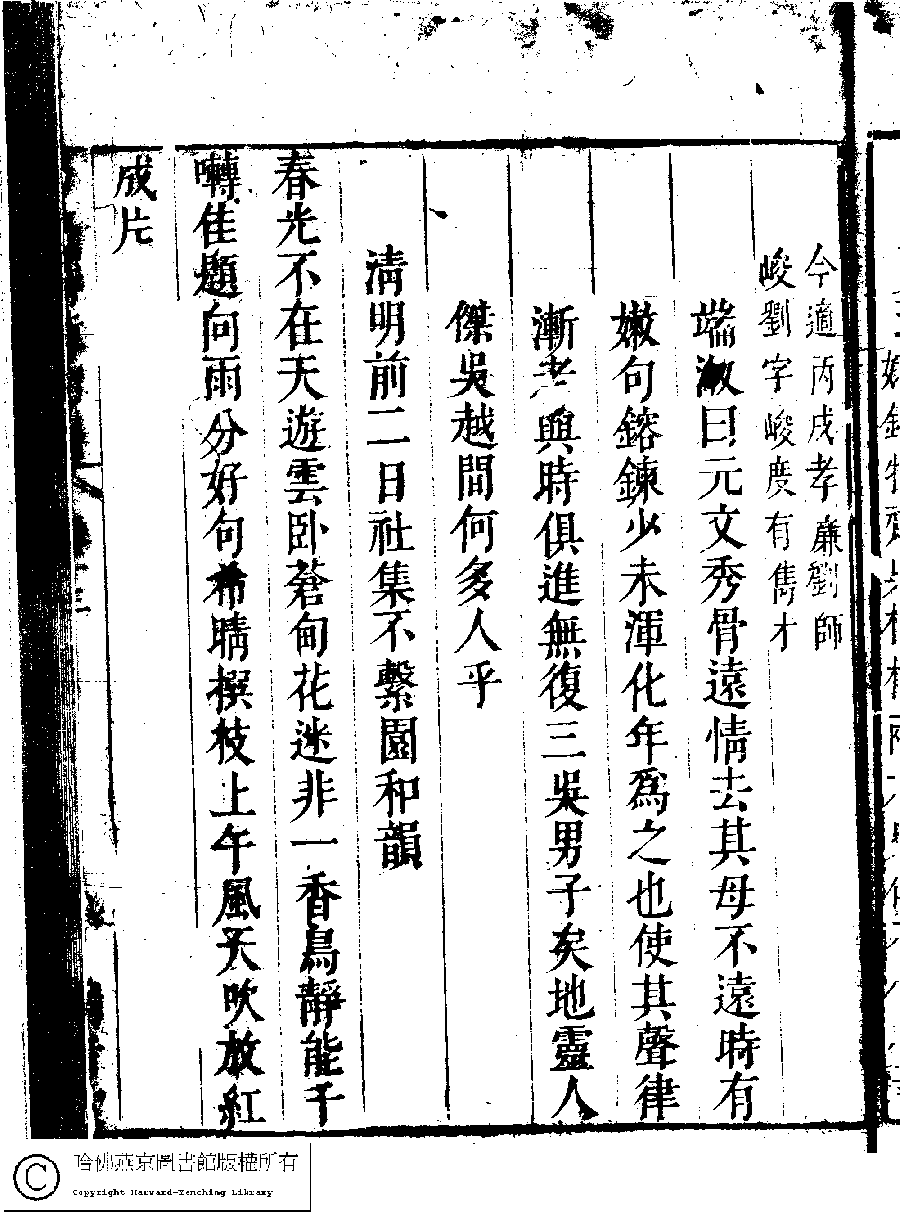 今適丙戌孝廉劉師
峻劉字峻度有雋才
端淑曰元文秀骨遠情去其母不遠時有
嫩句鎔鍊少未渾化年爲之也使其聲律
漸老與時俱進無復三吳男子矣地靈人
傑吳越間何多人乎
清明前二日社集不繫園和韻
春光不在天遊雲卧蒼甸花迷非一香鳥靜能千
囀佳題向雨分好句希晴撰枝上午風天吹放紅
成片
哈佛燕京圖書館版權所有
Copyright Harvard-Yenching Library